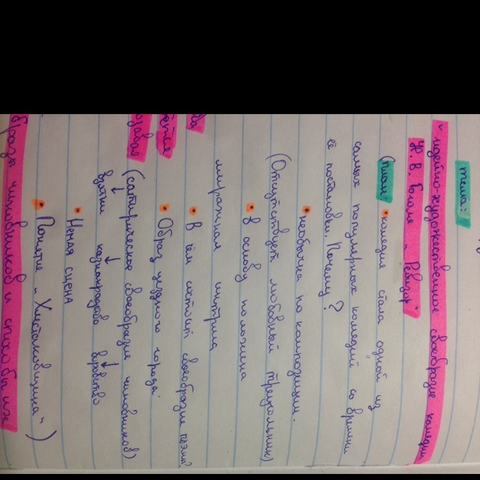 тема:
"идейно-художественное своеобразие комедии
Н. В. Гоголя "Ревизор".
(план) • комедия стала одной из
самых популярных комедий со времени
её постановки. Почему?
• необычна по композиции.
(Отсутствует любовный треугольник)
• в основу положена
миражная интрига
• В чём состоит своеобразие
• Образ уездного города
(сатирическое своеобразие чиновников)
взятки казнокрадство
• Немая сцена
• Понятие "Хлестаковщина")
чиновников и способы их